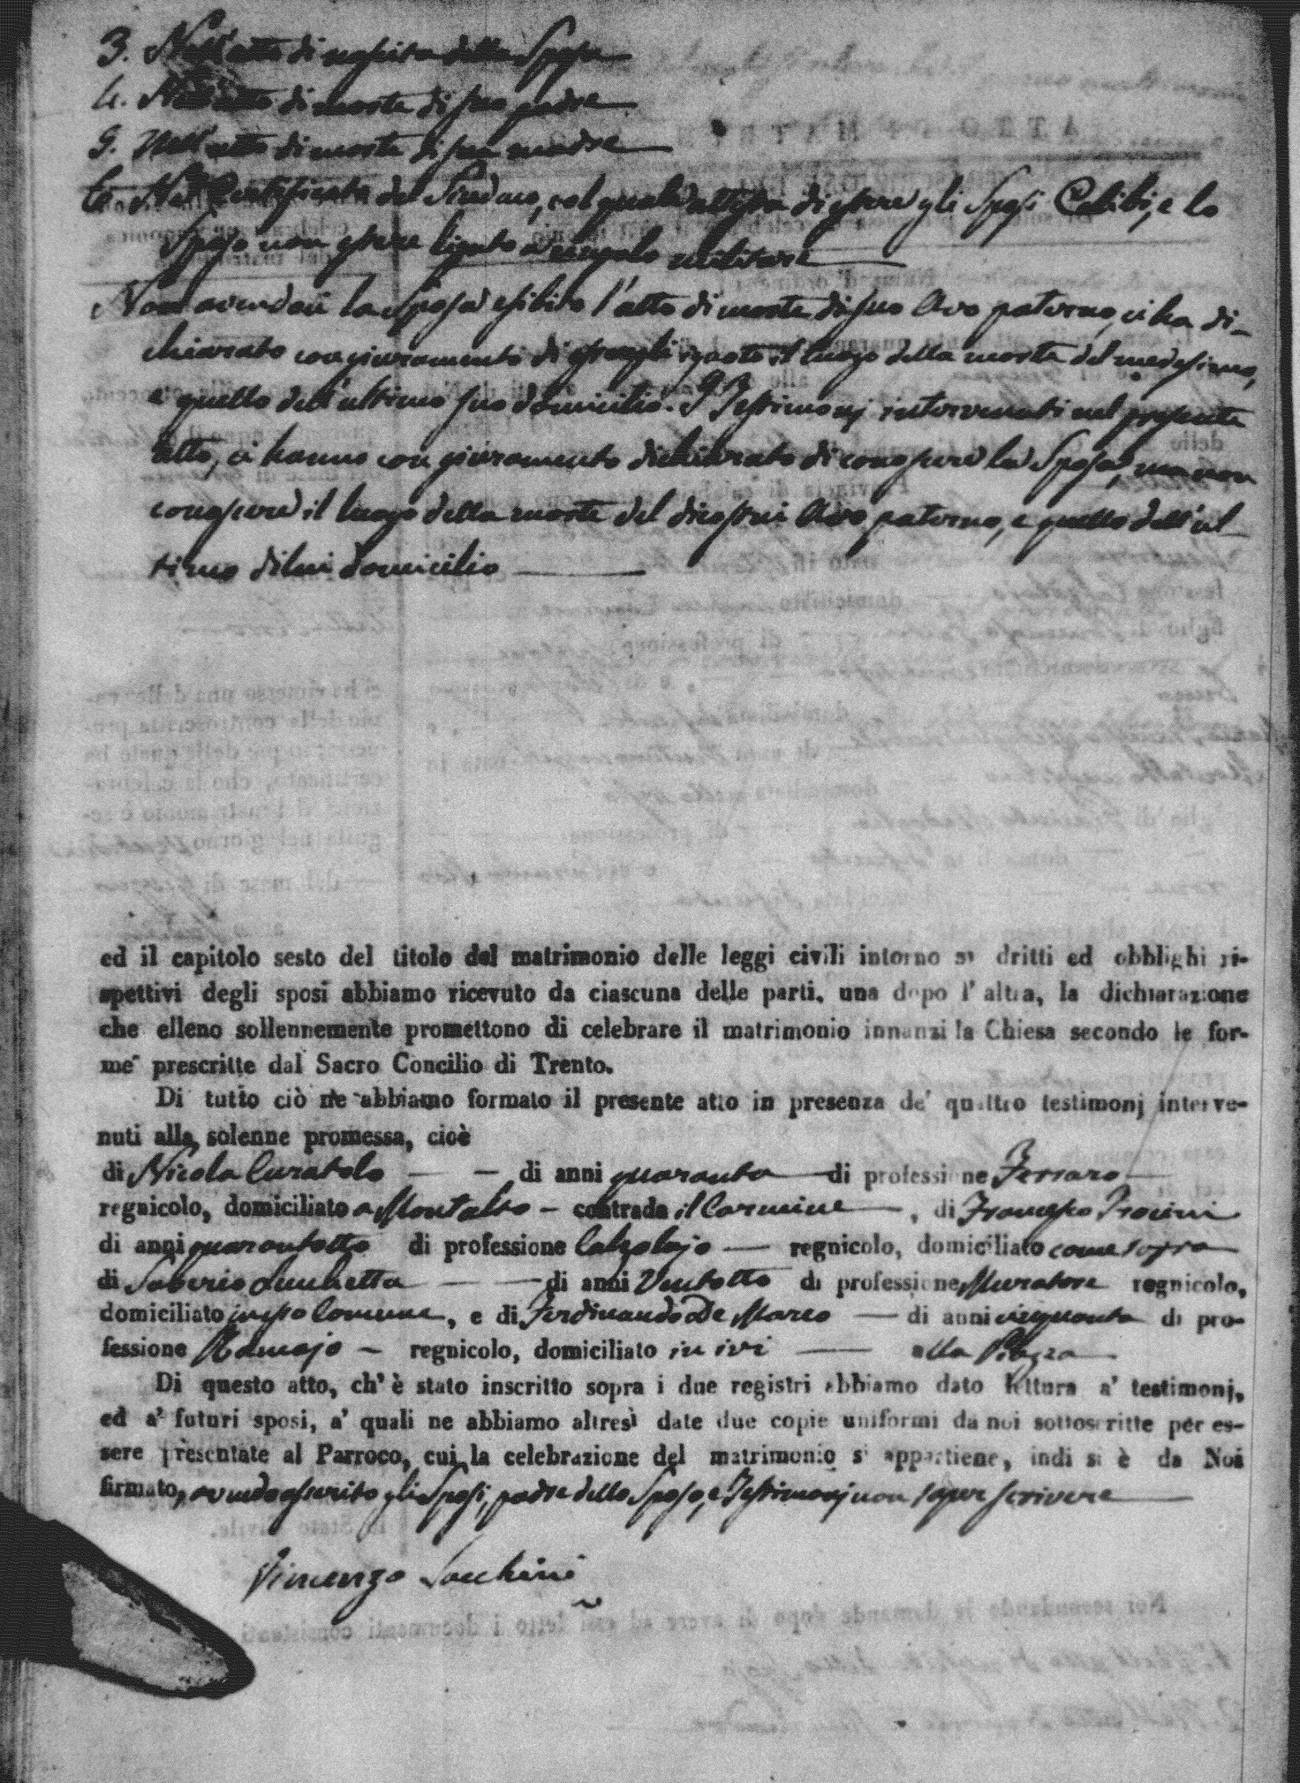 3. Nell'atto di nascita della Sposa
4. Nell'atto di morte di suo padre
5. Nell'atto di morte di sua madre
6. Nel Certificato del Sindaco, col quale attesta di essere gli Sposi Celibi, e lo
Sposo non essere ligato a vincolo militare
Non avendo la Sposa esibito l'atto di morte di suo Avo paterno, ci ha di-
chiarato con giuramento di essergli ignoto il luogo della morte del medesimo,
e quello dell'ultimo suo domicilio. I Testimonj intervenuti nel presente
atto, ci hanno con giuramento dichiarato di conoscere la Sposa, ma non
conoscere il luogo della morte del Avo paterno, e quello dell'ul-
timo di lui domicilio
ed il capitolo sesto del titolo del matrimonio delle leggi civili intorno a' dritti ed obblighi ri-
spettivi degli sposi abbiamo ricevuto da ciascuna delle parti, una dopo l'altra, la dichiarazione
che elleno sollennemente promettono di celebrare il matrimonio innanzi la Chiesa secondo le for-
me prescritte dal Sacro Concilio di Trento.
Di tutto ciò ne abbiamo formato il presente atto in presenza de' quattro testimonj interve-
nuti alla solenne promessa, cioè
di Nicola Curatolo — — di anni quaranta — di professione Ferraro —
regnicolo, domiciliato a Montalto — contrada il Carmine —, di Francesco
di anni quarantotto di professione Calzolajo — regnicolo, domiciliato come sopra
di Saverio Lucchetta — — di anni Ventotto di professione Muratore regnicolo,
domiciliato in Comune, e di Ferdinando De Marco — di anni cinquanta di pro-
fessione — regnicolo, domiciliato in ivi — alla Piazza
Di questo atto, ch' è stato inscritto sopra i due registri abbiamo dato lettura a' testimonj,
ed a' futuri sposi, a' quali ne abbiamo altresì date due copie uniformi da noi sottoscritte per es-
sere presentate al Parroco, cui la celebrazione del matrimonio s' appartiene, indi si è da Noi
firmato, avendo asserito gli Sposi, padre dello Sposo, e Testimonj non saper scrivere
Vincenzo